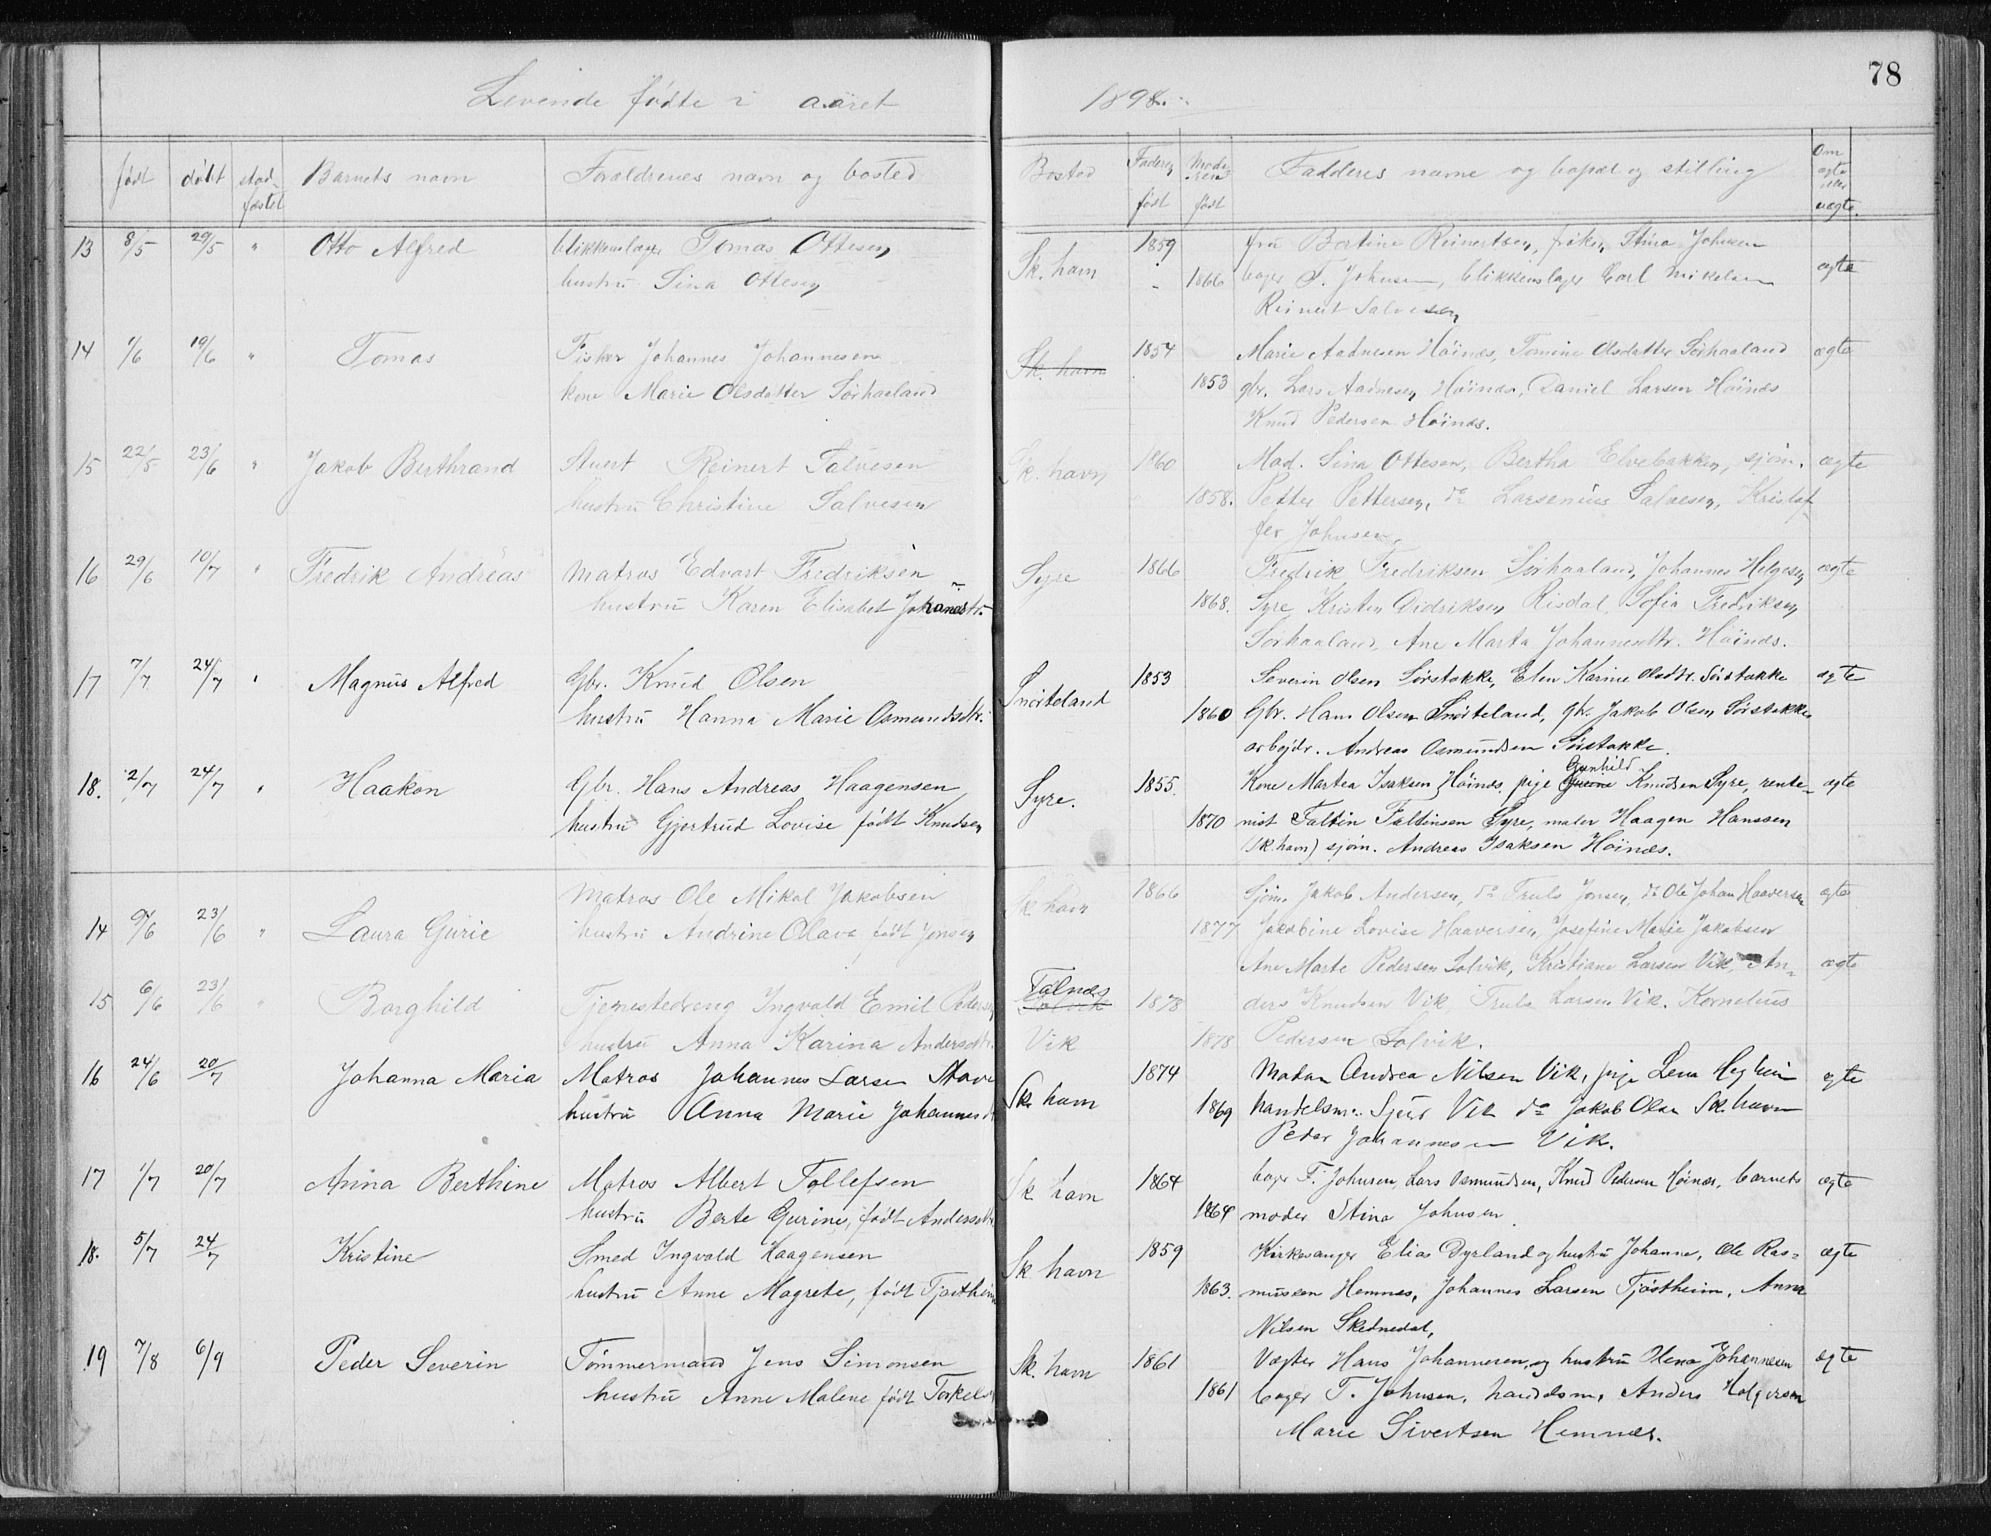 78
Levende fødte i aaret 1898.
født døbt stad- Barnets navn Forældrenes navn og bosted Bosted Faderen Mode- Fadderes navne og bopæl og stilling Om
fæstet født ren født ægte eller uægte.
13 8/5 29/5 " Otto Alfred blikkenslager Tomas Ottesen Sk. havn 1859 fru Bertine Reinertsen, frøken Stina Johnsen ægte
hustru Sina Ottesen 1866 bager T. Johnsen, blikkenslager Carl Mikelsen
Reinert Salvesen
14 1/6 19/6 " Tomas Fisker Johannes Johannesen Sk. havn 1854 Marie Aadnesen Höinæs, Tomine Olsdatter Sörhaaland ægte
kone Marie Olsdatter Sörhaaland 1853 gbr. Lars Aadnesen Höinæs, Daniel Larsen Höinæs
Knud Pedersen Höinæs.
15 22/5 23/6 " Jakob Berthrand Stuert Reinert Salvesen Sk. havn 1860 Mad. Sina Ottesen, Bertha Elvebakken, sjöm. ægte
hustru Christine Salvesen 1858. Petter Pettersen, do Larsenius Salvesen, Kristof
fer Johnsen
16 29/6 10/7 " Fredrik Andreas Matros Edvart Fredriksen Syre 1866 Fredrik Fredriksen Sörhaaland, Johannes Helgesen ægte
hustru Karen Elisabet Johansdtr. 1868. Syre, Kristen Didriksen Risdal, Sofia Fredriksen
Sörhaaland, Ane Marta Johannesdtr. Höinæs.
17 7/7 24/7 " Magnus Alfred Gbr. Knud Olsen Snörteland 1853 Severin Olsen Sörstokke, Elen Karine Olsdtr. Sörstokke ægte
hustru Hanna Marie Osmundsdtr. 1860 Gbr. Hans Olsen Snörteland, gbr. Jakob Olsen Sörstokke
arbejdr. Andreas Osmundsen Sörstokke.
18. 12/7 24/7 " Haakon Gbr. Hans Andreas Haagensen Syre. 1855. Kone Martea Isaksen Höinæs, pige Gunhild Knudsen Syre, rente- ægte
hustru Gjertrud Lovise født Knudsen 1870 nist Faltin Faltinsen Syre, maler Haagen Hanssen
(Sk. havn) sjöm. Andreas Isaksen Höinæs.
14 9/6 23/6 " Laura Gurie Matros Ole Mikal Jakobsen Sk. havn 1866 Sjöm. Jakob Andersen, do Truls Jensen, do Ole Johan Haaversen ægte
hustru Andrine Olava født Jensen 1877 Jakobine Lovise Haaversen, Josefine Marie Jakobsen
15 6/6 23/6 " Borghild Tjenestedreng Ingvald Emil Pedersen Falnæs Vik 1878 Ane Marte Pedersen Solvik, Kristiane Larsen Vik, An- ægte
hustru Anna Karina Andersdtr. 1878 ders Knudsen Vik, Truls Larsen Vik. Kornelius
Pedersen Solvik.
16 24/6 20/7 Johanna Maria Matros Johannes Larsen Stave Sk. havn 1874 Madam Andrea Nilsen Vik, pige Lena Hegheim ægte
hustru Anna Marie Johannesdt 1869 handelsm. Sjur Vik do Jakob Olsen Sk. havn
Peder Johannesen Vik.
17 1/7 20/7 Anna Berthine Matros Albert Tollefsen Sk. havn 1864 bager T. Johnsen, Lars Osmundsen, Knud Pedersen Höinæs, barnets ægte
hustru Berte Gurine, født Andersdtr 1864 moder Stina Johnsen.
18. 5/7 24/7 Kristine Smed Ingvald Haagensen Sk. havn 1859 Kirkesanger Elias Dyrland og hustru Johanne, Ole Ras- ægte
hustru Anne Magrete, født Tjöstheim 1863. mussen Hemnes, Johannes Larsen Tjöstheim, Anna
Nilsen Skednedal,
19 7/8 6/9 Peder Severin Tömmermand Jens Simonsen Sk. havn 1861 Vægter Hans Johannesen, og hustru Olena Johannesen ægte
hustru Anne Malene født Torkels 1861 bager T. Johnsen, handelsm. Anders Holgersen
Marie Sivertsen Hemnes.